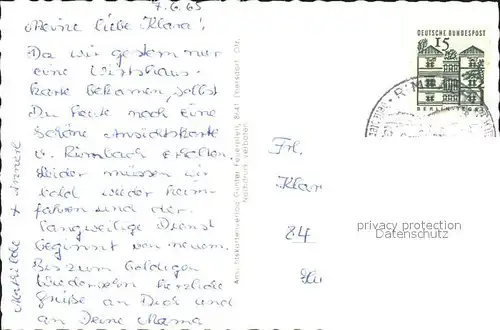 7.6.65
Meine liebe Klara!
Da wir gestern nur
eine Wirtshaus-
karte bekamen, sollst
Du heute noch eine
schöne Ansichtskarte
v. Rimbach erhalten.
Leider müssen wir
bald wieder heim-
fahren und der
langweilige Dienst
beginnt von neuem.
Bis zum baldigen
Wiedersehn herzliche
Grüße an Dich und
an Deine Mama
Mathilde +
Ansichtskartenverlag Günter Feuerpfeil, 8641
Nachdruck verboten
DEUTSCHE BUNDESPOST
15
BERLIN-TEGEL
Frl.
Klar
84
privacy protection
Datenschutz